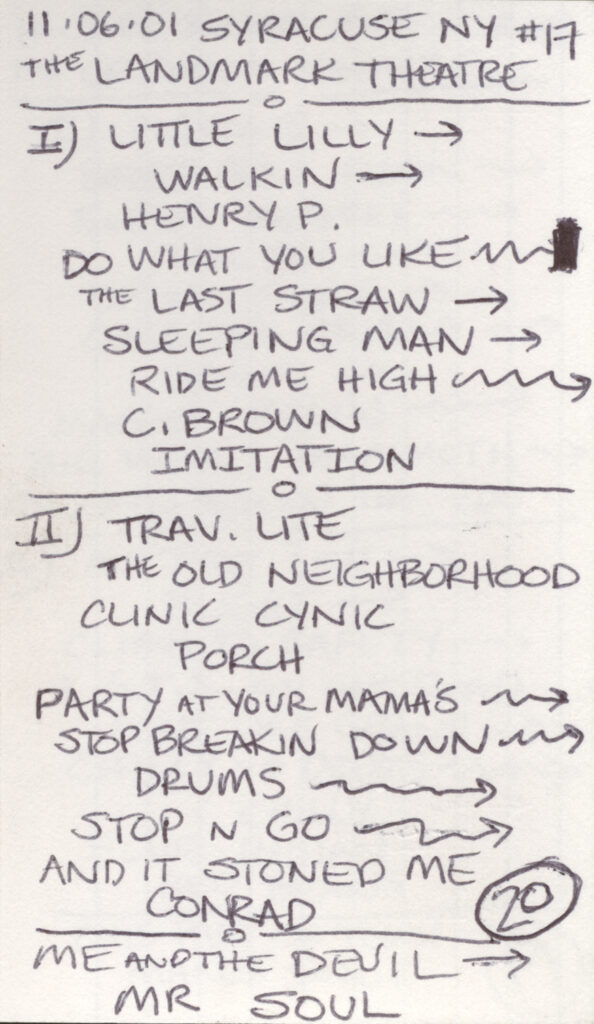 11·06·01 SYRACUSE NY #17
THE LANDMARK THEATRE
I) LITTLE LILLY →
WALKIN →
HENRY P.
DO WHAT YOU LIKE
THE LAST STRAW →
SLEEPING MAN →
RIDE ME HIGH →
C. BROWN
IMITATION
II) TRAV. LITE
THE OLD NEIGHBORHOOD
CLINIC CYNIC
PORCH
PARTY AT YOUR MAMA'S →
STOP BREAKIN DOWN →
DRUMS →
STOP N GO →
AND IT STONED ME
CONRAD 20
ME AND THE DEVIL →
MR SOUL